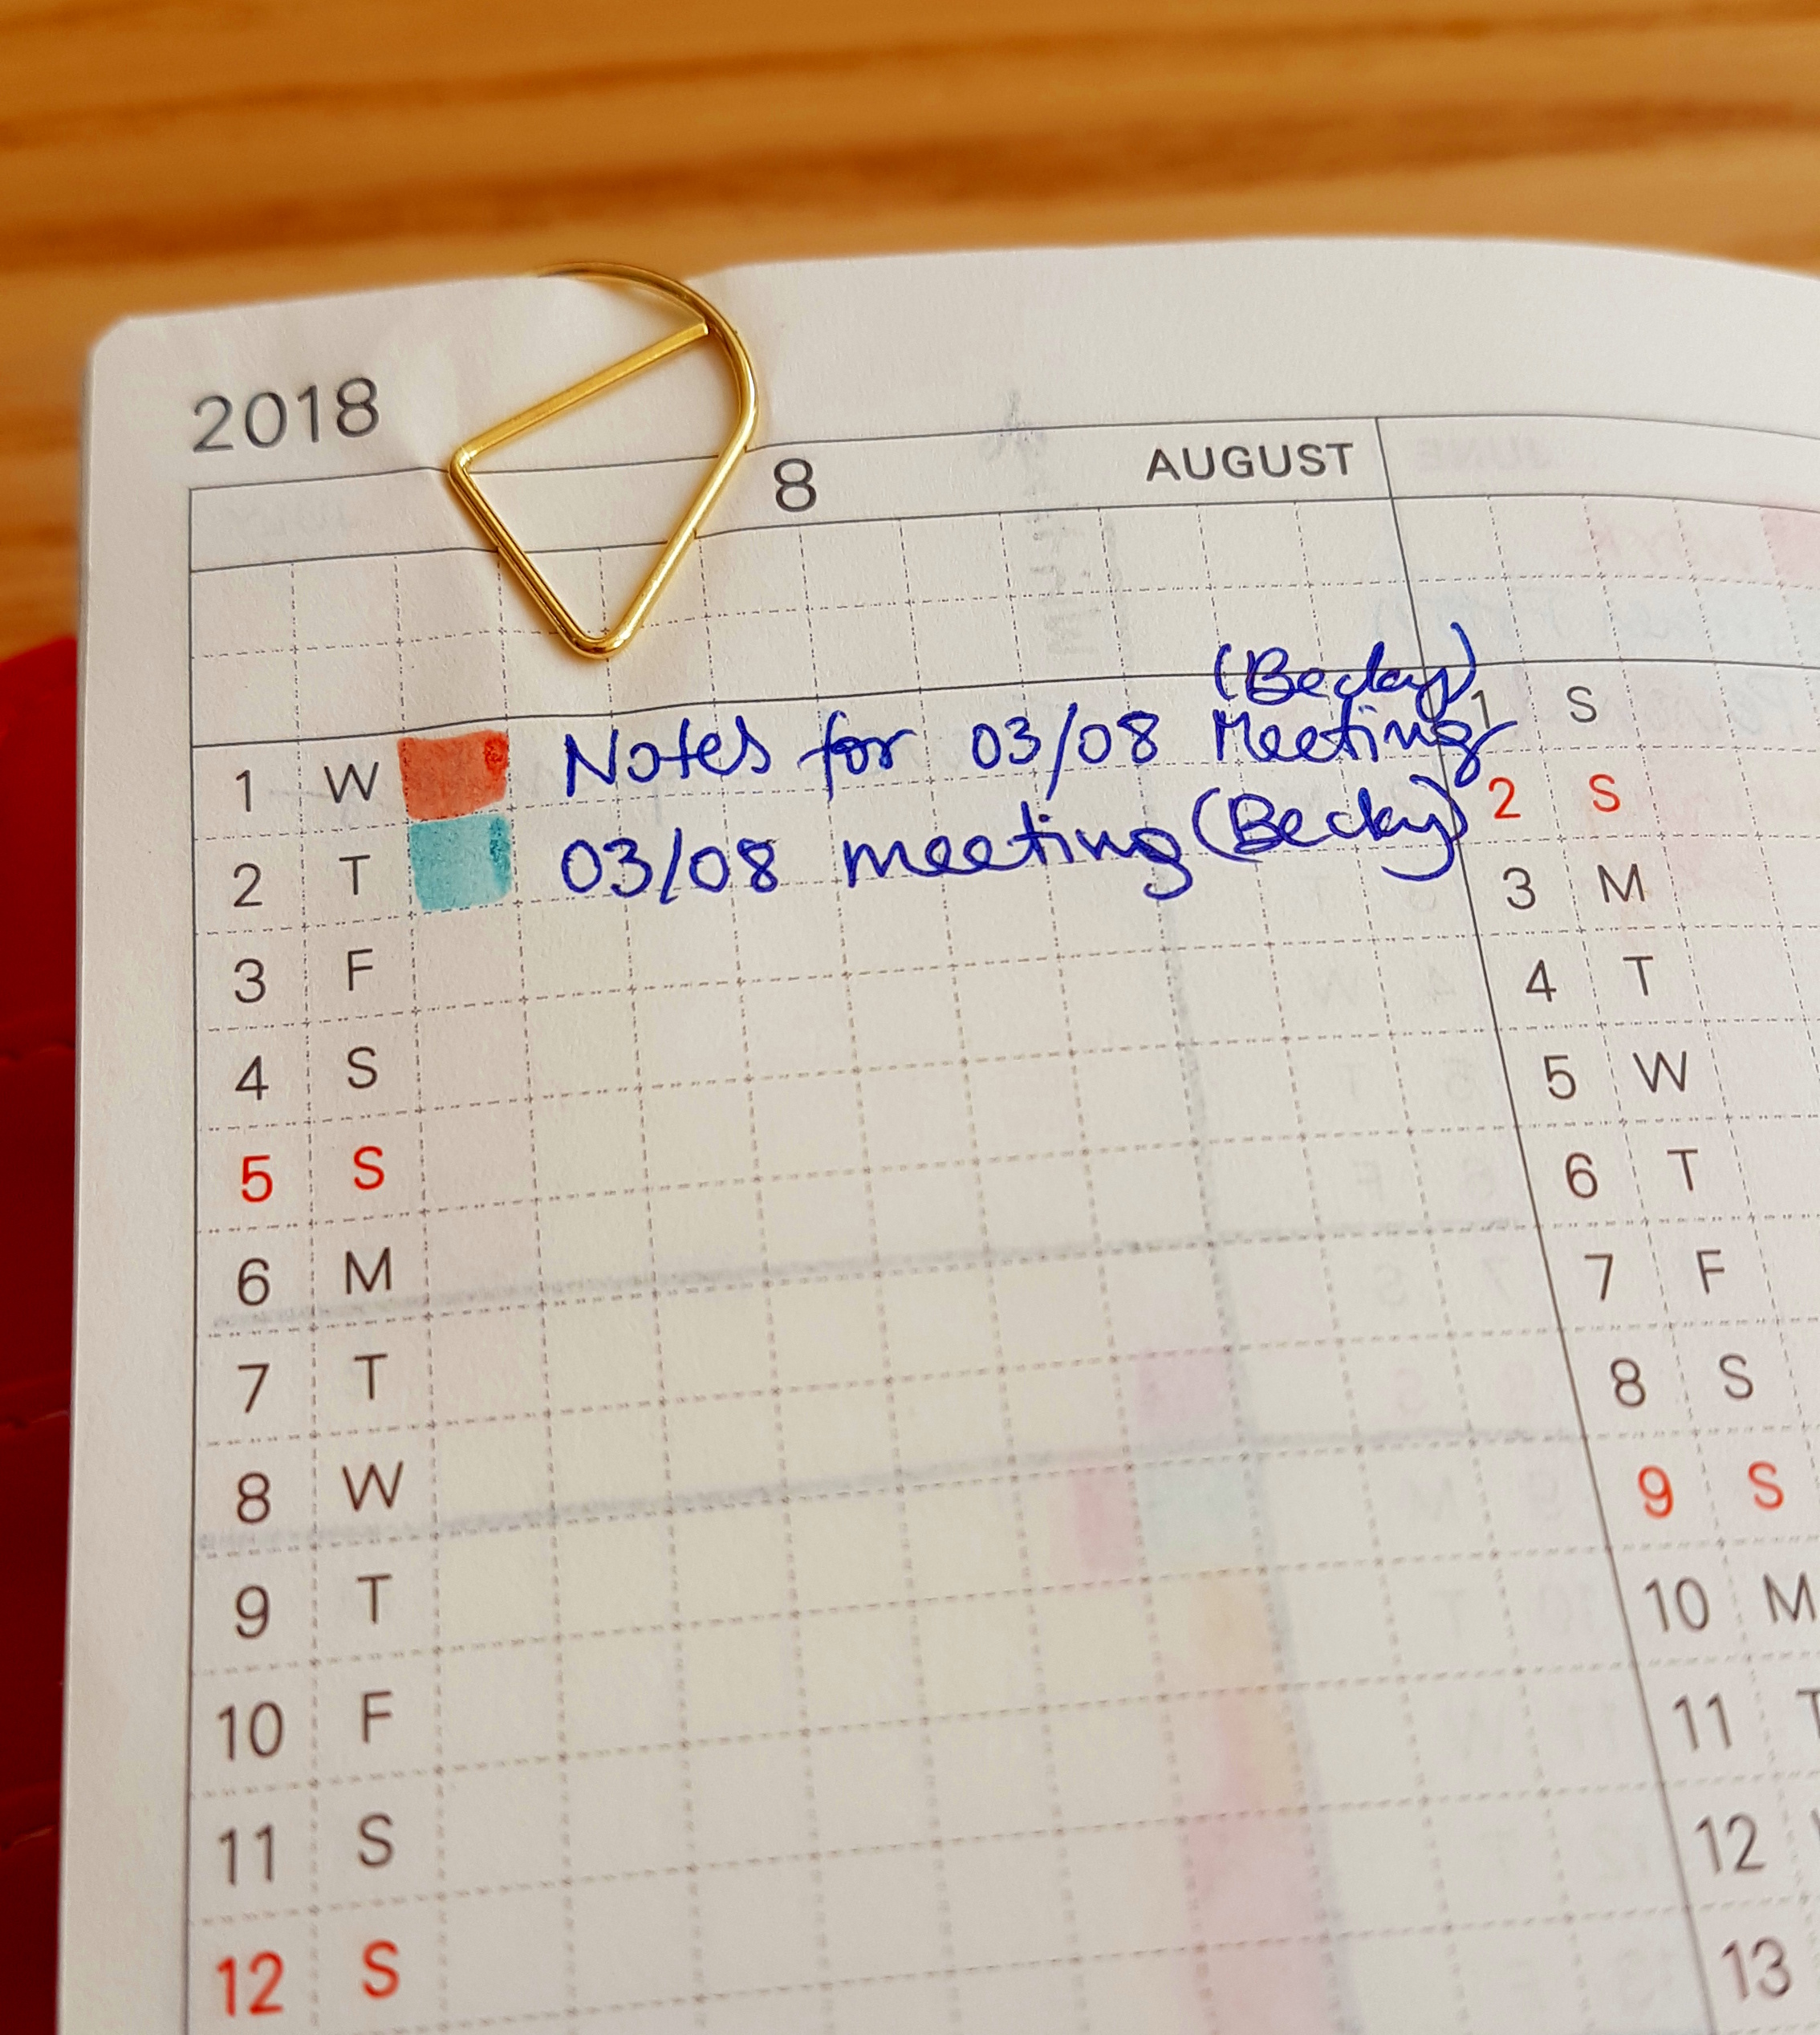 2018
8 AUGUST
(Becky)
1 W Notes for 03/08 Meeting
2 T 03/08 meeting (Becky)
3 F
4 S
5 S
6 M
7 T
8 W
9 T
10 F
11 S
12 S
1 S
2 S
3 M
4 T
5 W
6 T
7 F
8 S
9 S
10 M
11 T
12
13